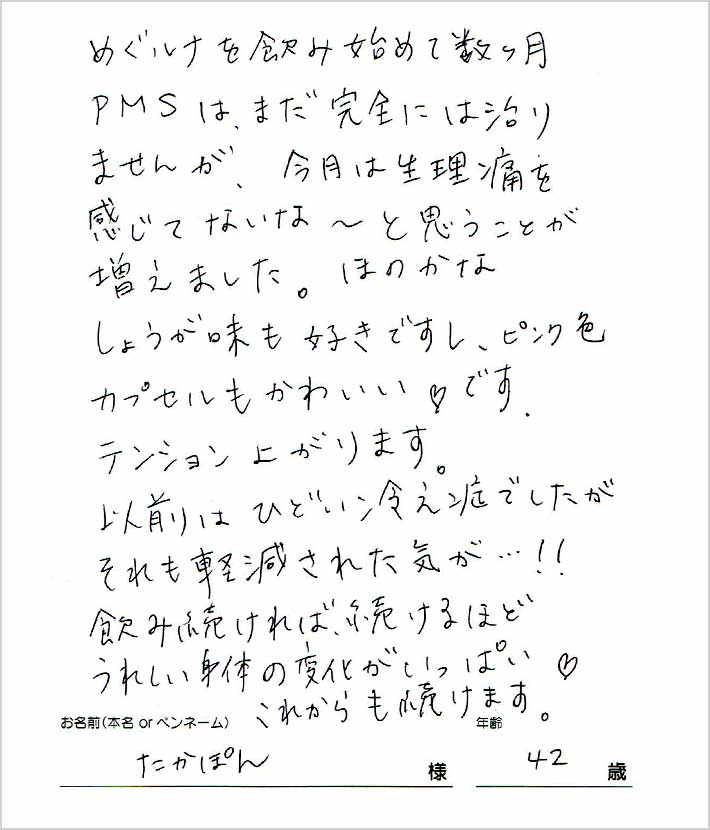 めぐルナを飲み始めて数ヶ月
PMSは、まだ完全には治り
ませんが、今月は生理痛を
感じてないな〜と思うことが
増えました。ほのかな
しょうが味も好きですし、ピンク色
カプセルもかわいい♡です.
テンション上がります。
以前はひどい冷え症でしたが
それも軽減された気が…!!
飲み続ければ、続けるほど
うれしい身体の変化がいっぱい♡
これからも続けます。
お名前(本名 or ペンネーム) 年齢
たかぽん 様 42 歳